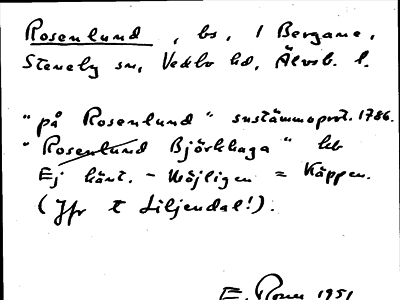 Rosenlund, bs, i Bergane,
Steneby sn, Vedbo hd, Älvsb. l.
"på Rosenlund" sustämmoprot. 1786.
"Rosenlund Björkhaga" hb
Ej känt. - Möjligen = Käppen.
(Jfr t Liljendal!).
E. 1951